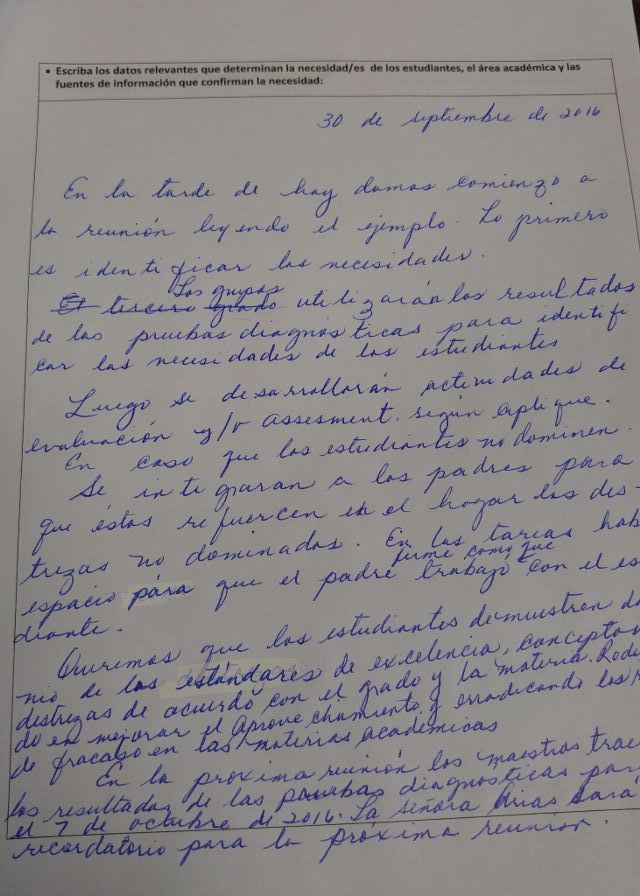 • Escriba los datos relevantes que determinan la necesidad/es de los estudiantes, el área académica y las
fuentes de información que confirman la necesidad:
30 de septiembre de 2016
En la tarde de hoy damos comienzo a
la reunión leyendo el ejemplo. Lo primero
es identificar las necesidades.
Los grupos
El tercero grado utilizarán los resultados
de las pruebas diagnósticas para identifi
car las necesidades de los estudiantes
Luego se desarrollarán actividades de
evaluación y/o assesment. según aplique.
En caso que los estudiantes no dominen.
Se integraran a los padres para
que éstos refuercen en el hogar las des-
trezas no dominadas. En las tareas hab
firme como que
espacio para que el padre trabajó con el es
diante.
Queremos que los estudiantes demuestren do
nio de los estándares de excelencia, conceptos
destrezas de acuerdo con el grado y la materia.
do en mejorar el aprovechamiento y erradicando los r
de fracaso en las materias académicas
En la proxima reunión los maestros trae
los resultados de las pruebas diagnósticas par
el 7 de octubre de 2016. La señora Arias hará
recordatorio para la próxima reunión.